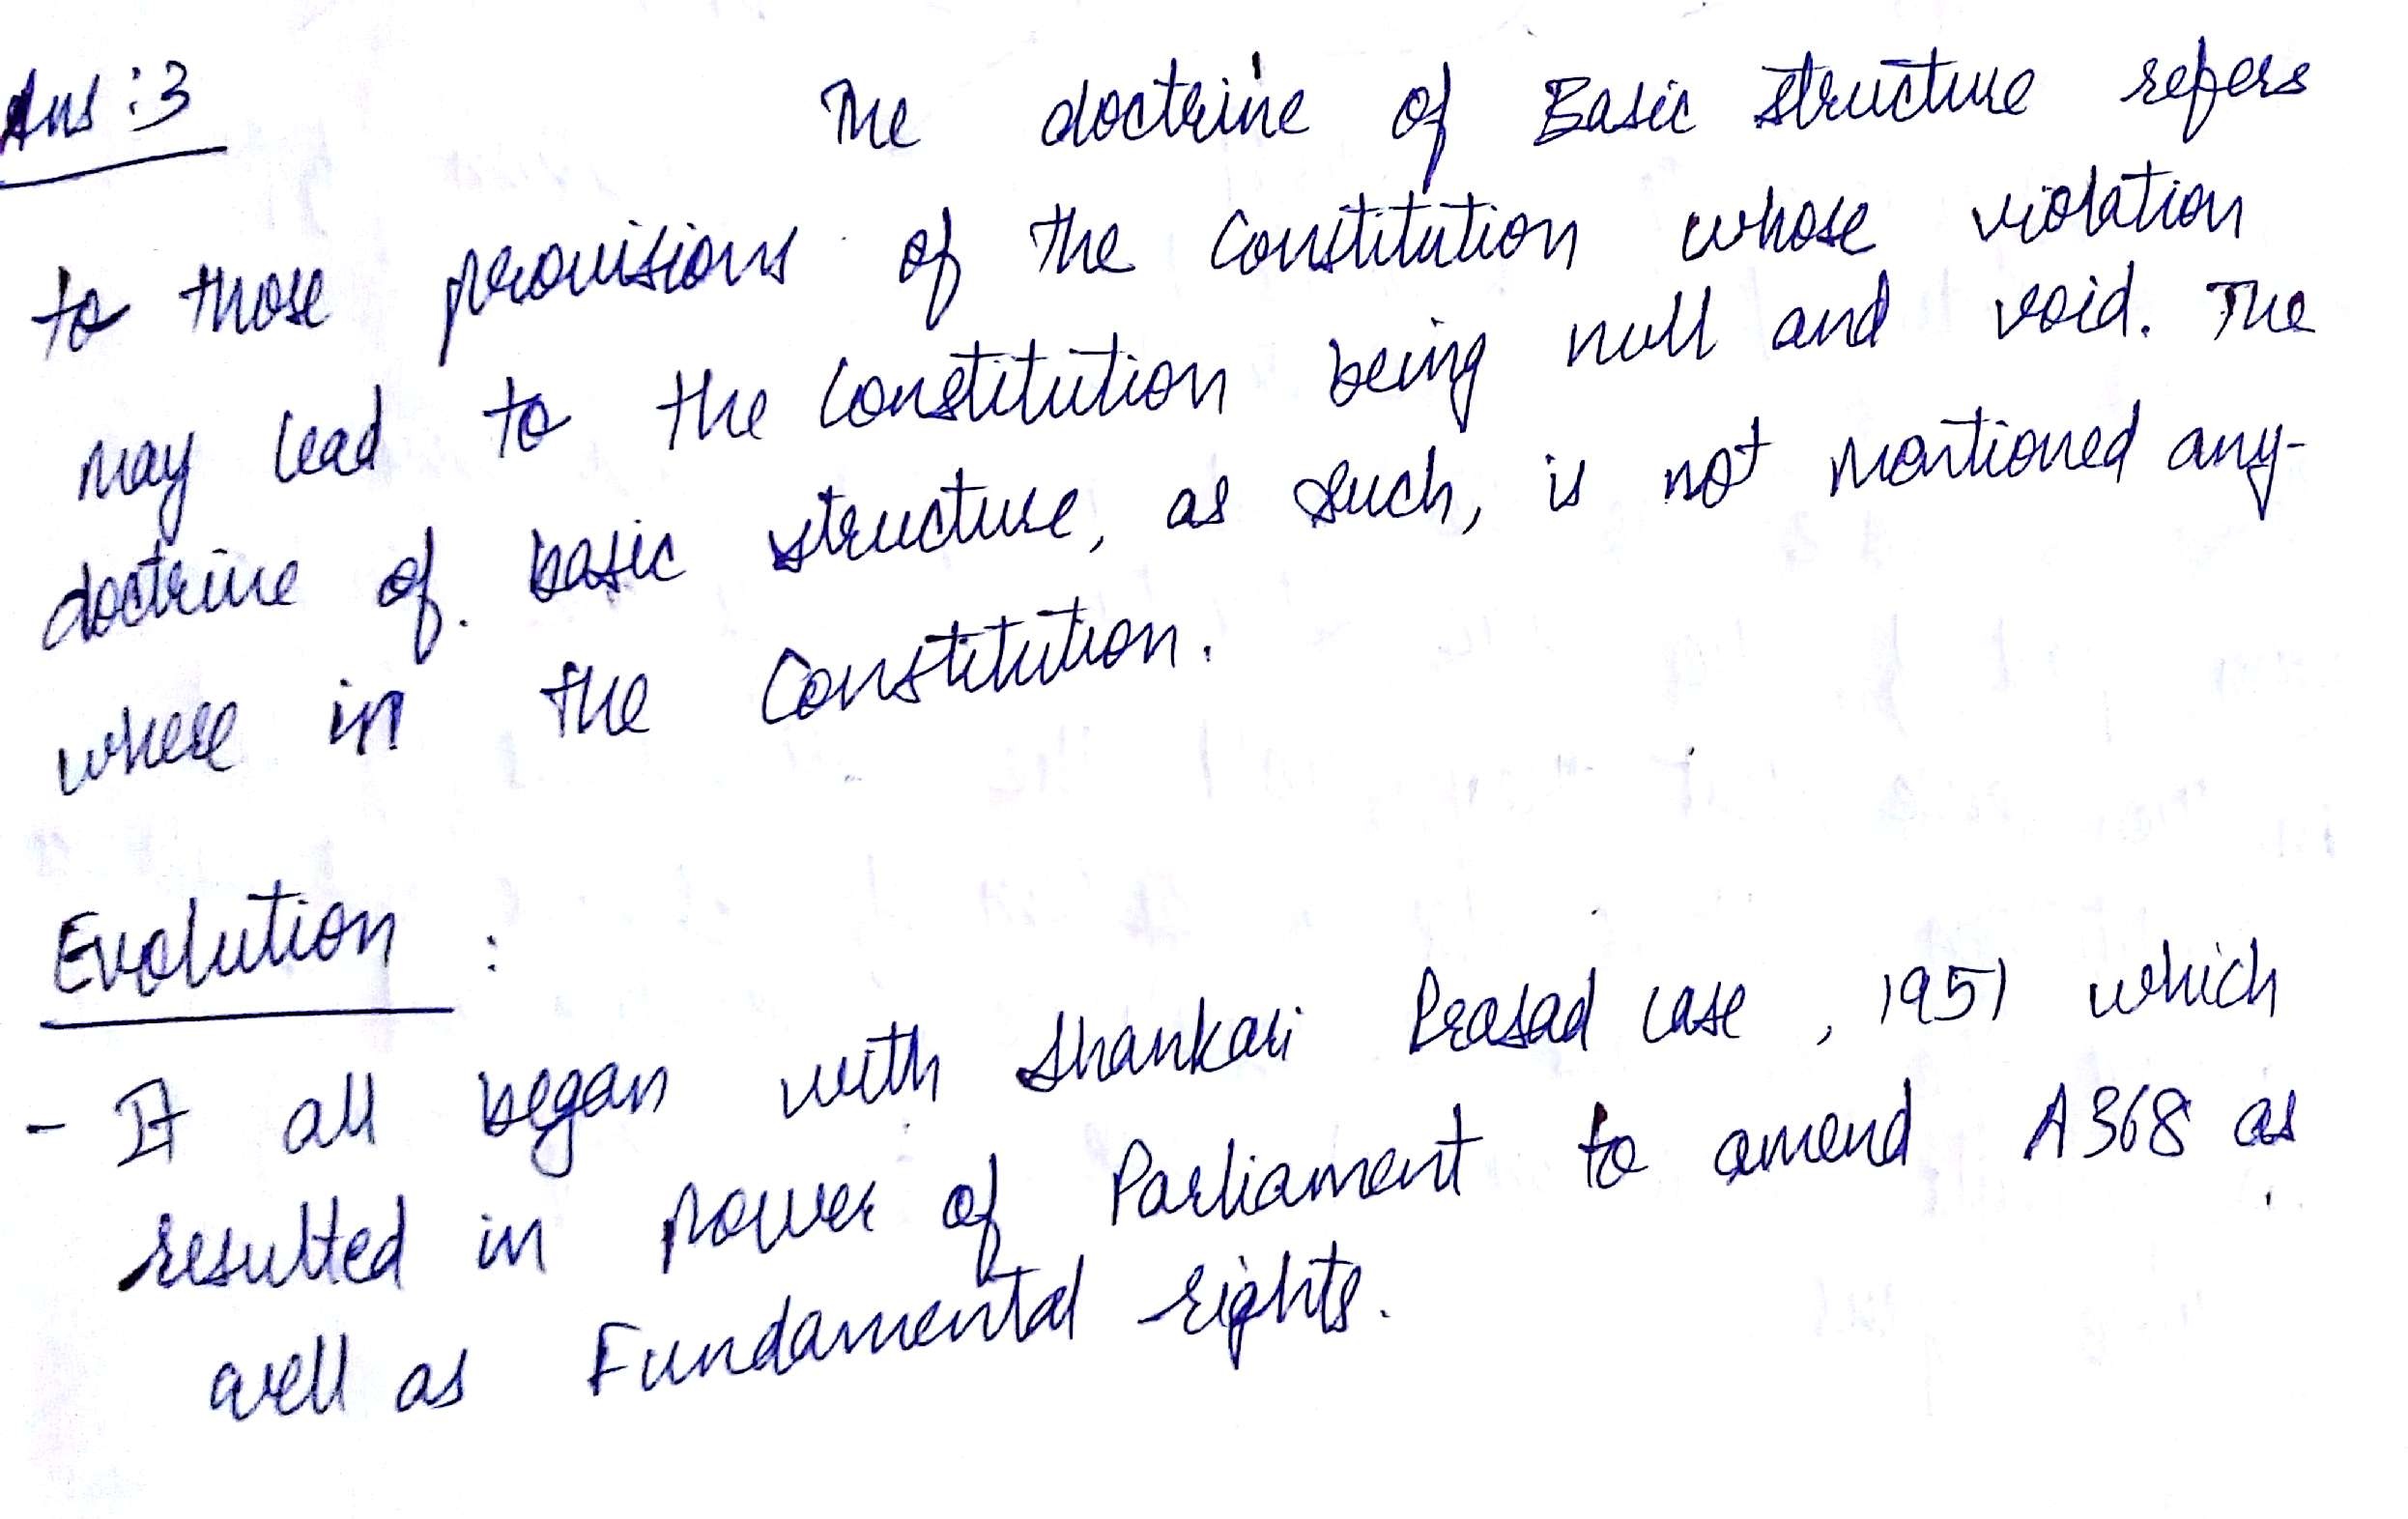 Ans:3 The doctrine of Basic structure refers
to those provisions of the Constitution whose violation
may lead to the Constitution being null and void. The
doctrine of basic structure, as such, is not mentioned any-
where in the Constitution.
Evolution :
- It all began with Shankari Prasad case, 1951 which
resulted in power of Parliament to amend A368 as
well as Fundamental rights.